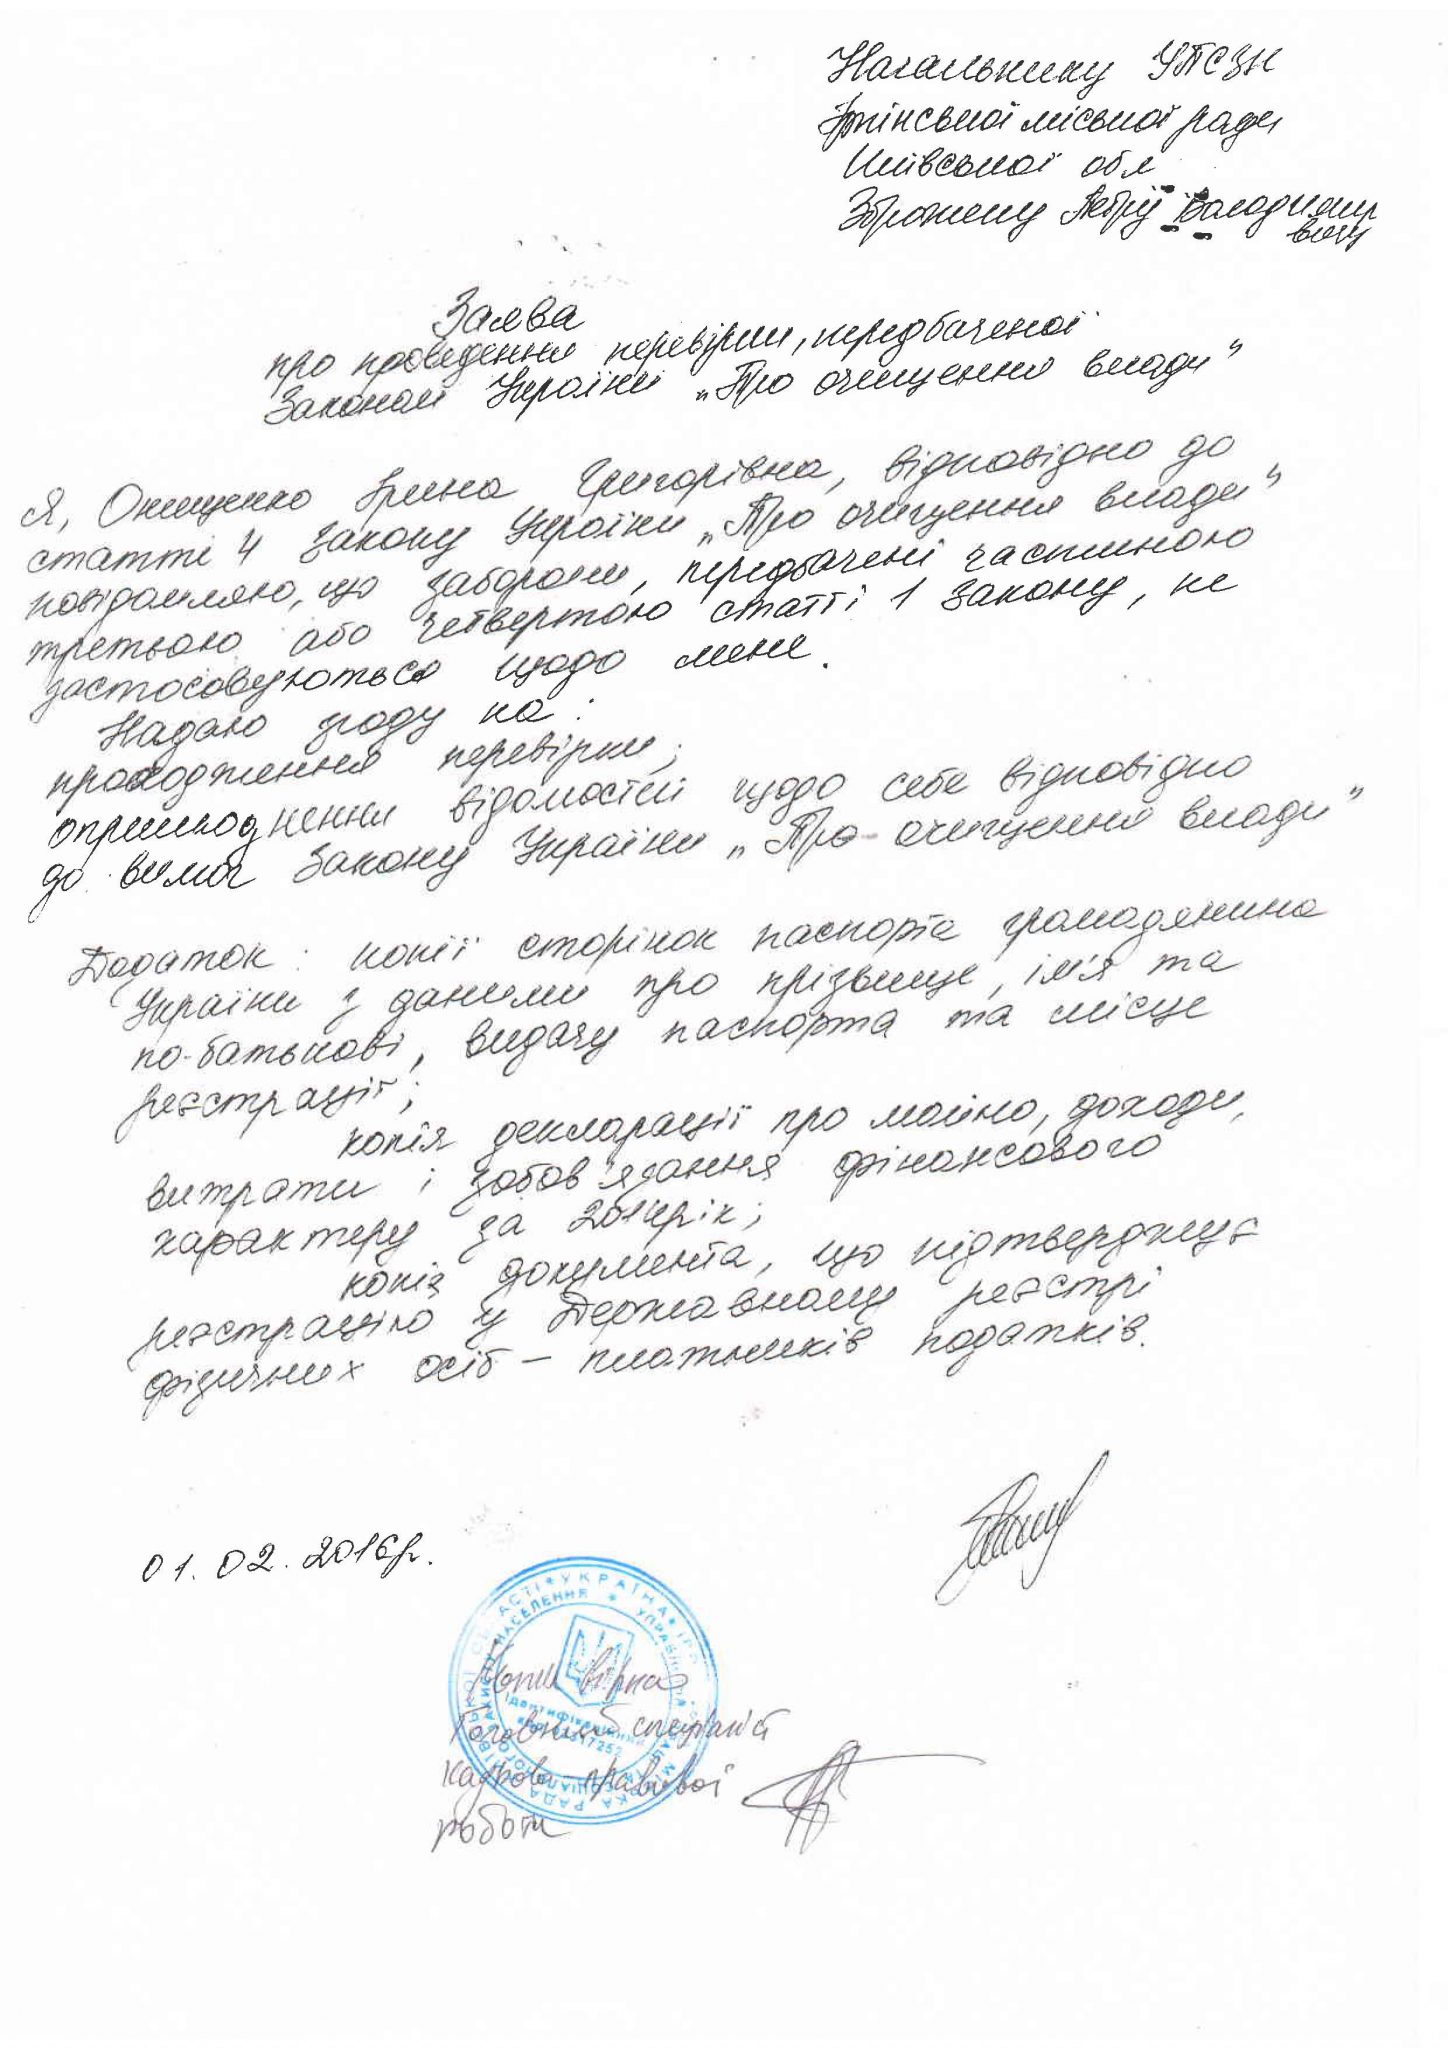 Начальнику УПСЗН
Ірпінської міської ради
Київської обл
Зброжеку Петру Володимир
вичу
Заява
про проведення перевірки, передбаченої
Законом України „Про очищення влади"
Я, Онищенко Ірина Григорівна, відповідно до
статті 4 Закону України „Про очищення влади"
повідомляю, що заборони, передбачені частиною
третьою або четвертою статті 1 Закону, не
застосовуються щодо мене.
Надаю згоду на:
проходження перевірки;
оприлюднення відомостей щодо себе відповідно
до вимог Закону України „Про очищення влади"
Додаток: копії сторінок паспорта громадянина
України з даними про прізвище, ім'я та
по-батькові, видачу паспорта та місце
реєстрації;
копія декларації про майно, доходи,
витрати і зобов'язання фінансового
характеру за 2014рік;
копія документа, що підтверджує
реєстрацію у Державному реєстрі
фізичних осіб – платників податків.
01.02.2016р.
Копія вірна
Головний спеціаліст
кадрово-правової
роботи
УКРАЇНА
УПРАВЛІННЯ
НАСЕЛЕННЯ
Ідентифікаційний
МІСЬКА РАДА